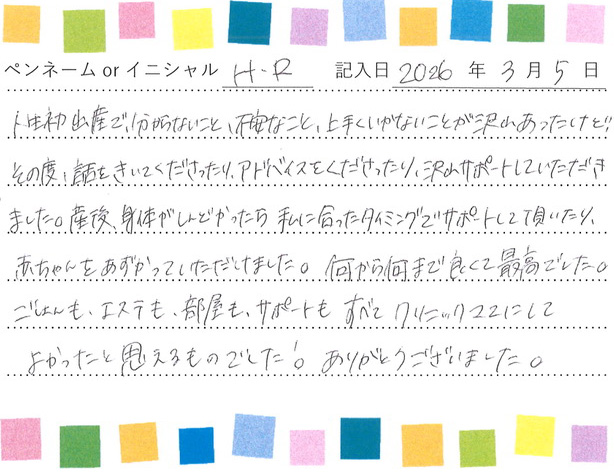 ペンネーム or イニシャル H・R 記入日 2026 年 3 月 5 日
人生初出産で、分からないこと、不安なこと、上手くいかないことが沢山あったけど、
その度、話をきいてくださったり、アドバイスをくださったり、沢山サポートしていただき
ました。産後、身体がしんどかったら私に合ったタイミングでサポートして頂いたり、
赤ちゃんをあずかっていただけました。何から何まで良くて最高でした。
ごはんも、エステも、部屋も、サポートも すべて クリニックココにして
よかったと思えるものでした!。ありがとうございました。